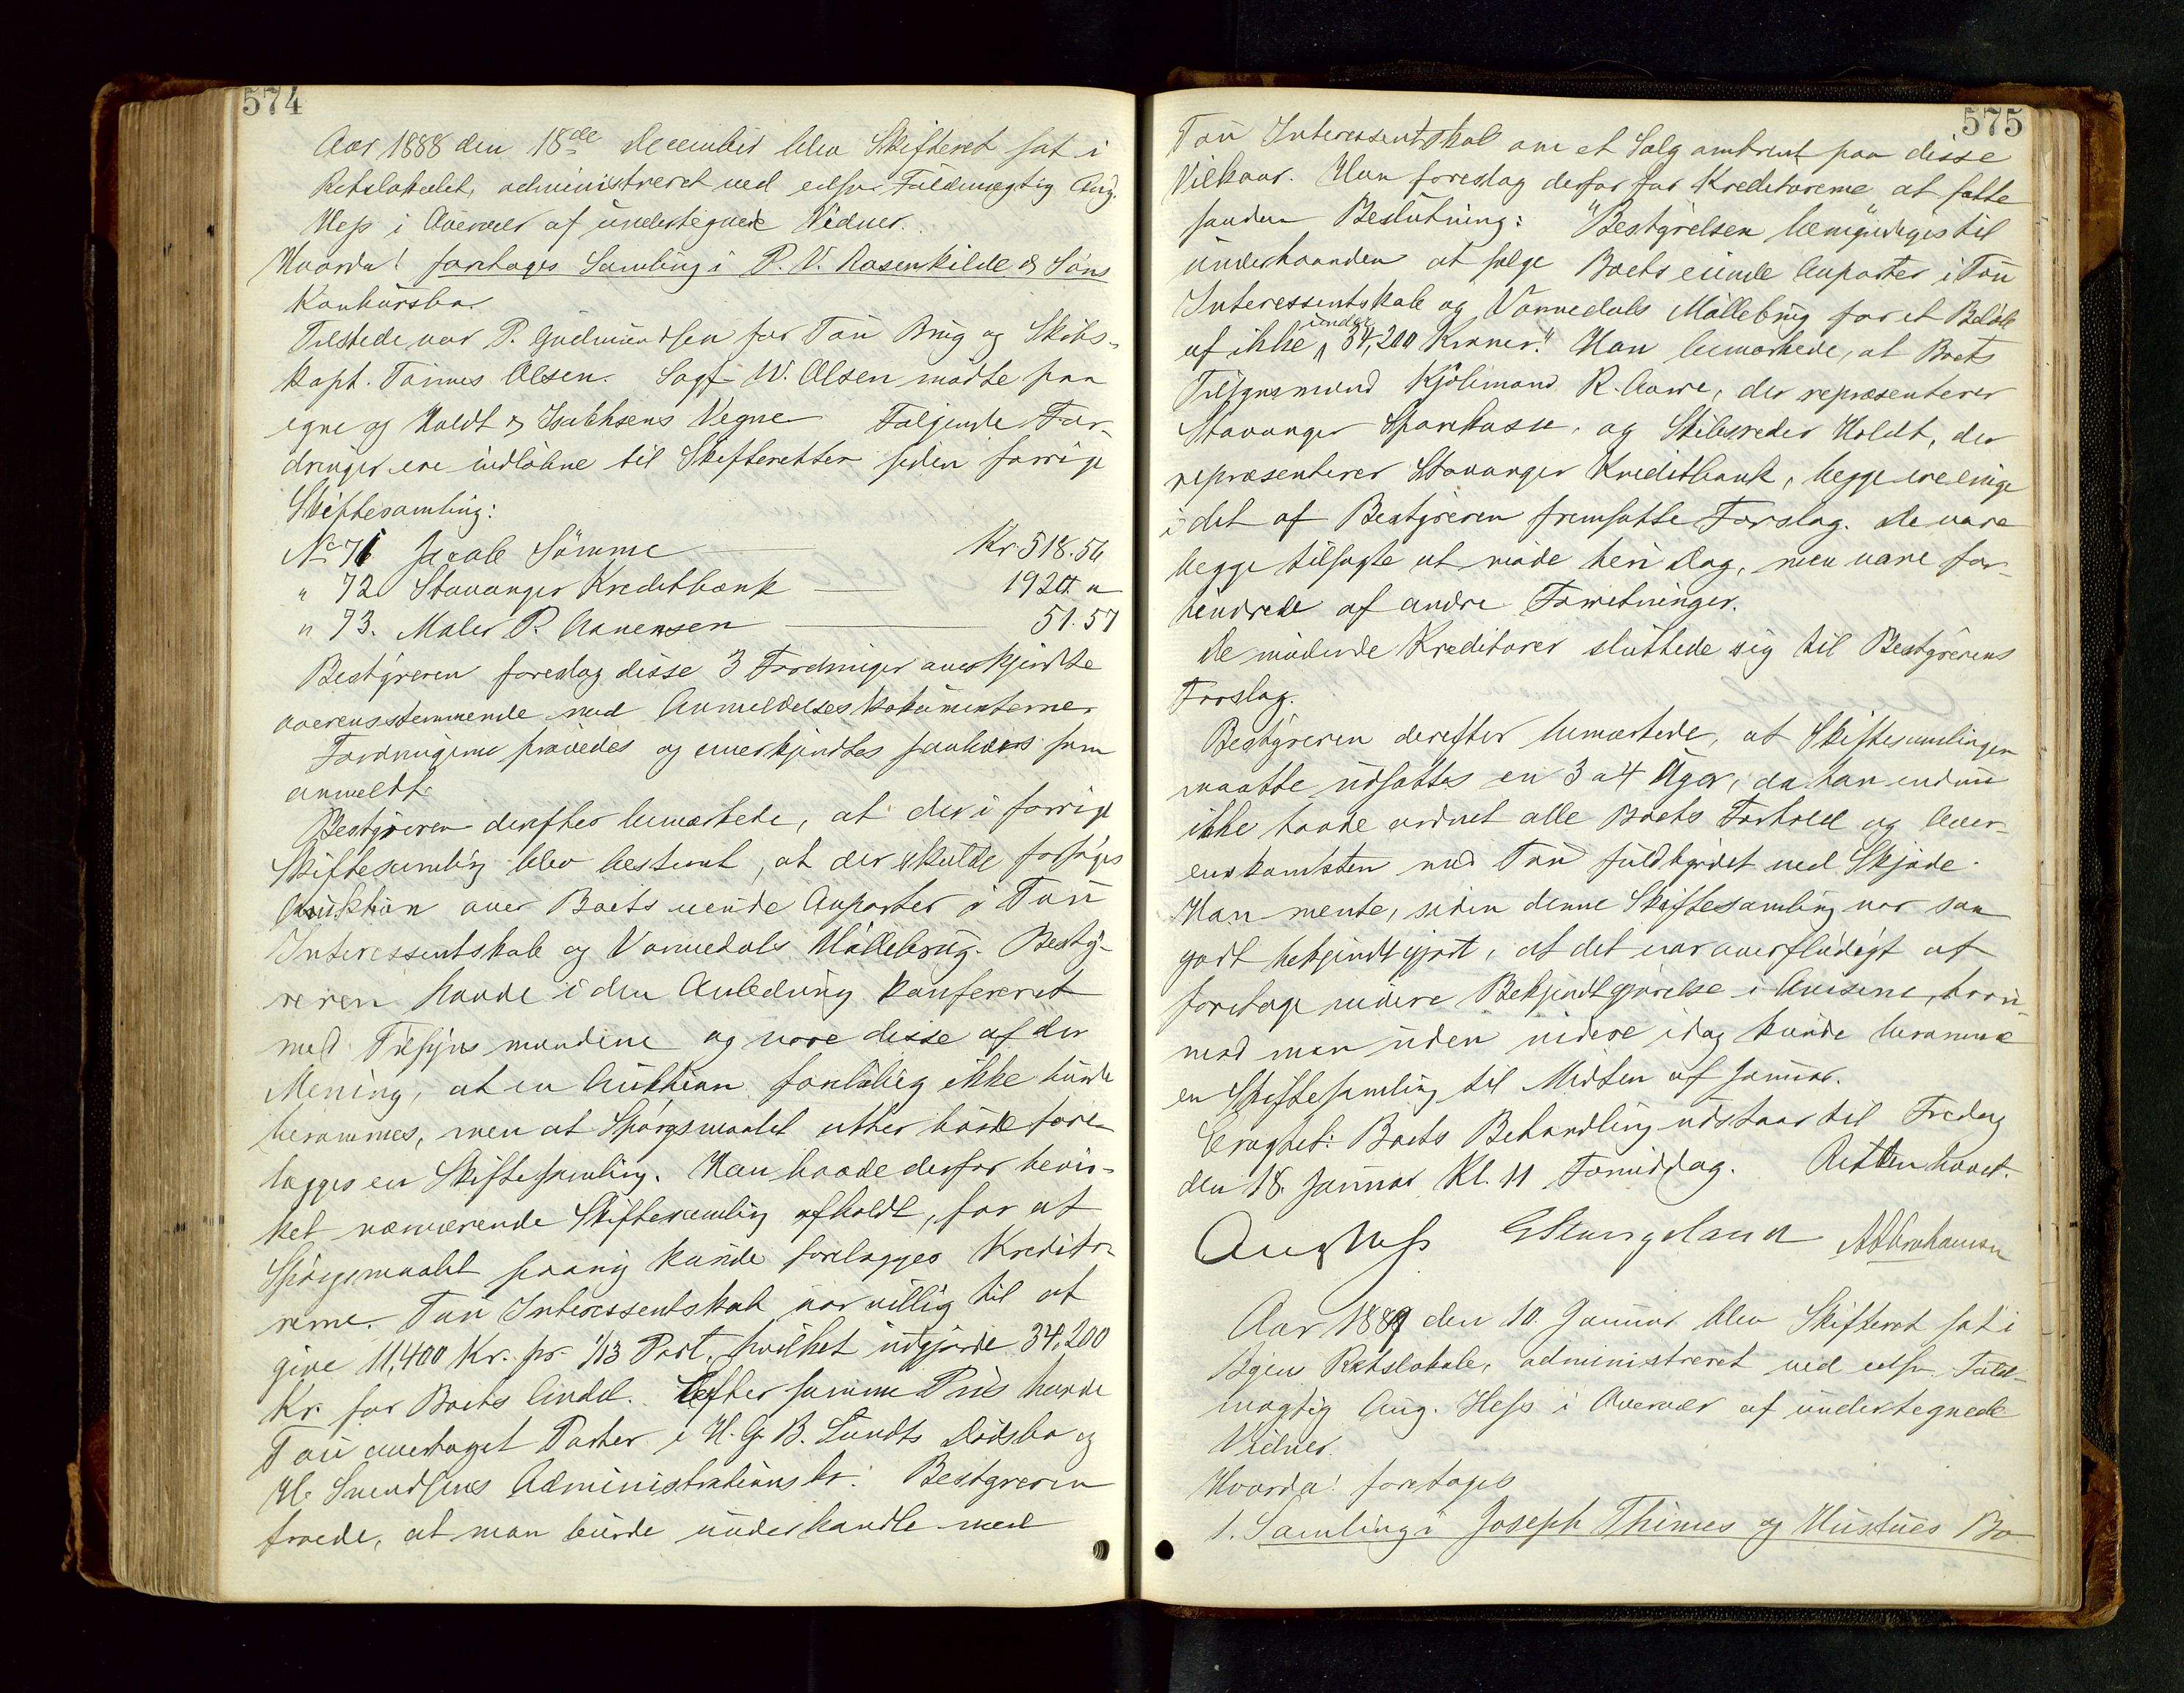 574
Aar 1888 den 18de December blev Skifteret sat i
Retslokalet, administreret ved edsvr. Fuldmægtig Aug.
Hess i Overvær af undertegnede Vidner.
Hvorda! foretoges Samling i P. V. Rosenkilde & Søns
Konkursbo.
Tilstede var P. Gudmundsen for Tou Brug og Skibs-
kapt. Tønnes Olsen. Sagf. W. Olsen mødte paa
egne og Holdt & Isachsens Vegne. Følgende For-
dringer ere indløbne til Skifteretten siden forrige
Skiftesamling:
No 71 Jacob Sømme Kr. 518.54
" 72 Stavanger Kreditbank 1924 "
" 73. Maler P. Aanensen 51.57
Bestyreren foreslog disse 3 Fordringer anerkjendte
overensstemmende med Anmeldelsesdokumenterne.
Fordringerne prøvedes og anerkjendtes saaledes som
anmeldt.
Bestyreren derefter bemærkede, at der i forrige
Skiftesamling blev bestemt, at der skulde forsøges
Auktion over Boets eiende Anparter i Tou
Interessentskab og Vormedals Møllebrug. Besty-
reren havde i den Anledning konfereret
med Tilsynsmændene og vare disse af den
Mening, at en Auktion foreløbig ikke burde
berammes, men at Spørgsmaalet atter burde fore-
lægges en Skiftesamling. Han havde derfor bevir-
ket nærværende Skiftesamling afholdt, for at
Spørgsmaalet paany kunde forelægges Kredito-
rerne. Tou Interessentskab var villig til at
give 11,400 Kr. pr. 1/13 Part, hvilket udgjorde 34,200
Kr. for Boets Andel. Efter samme Pris havde
Tou overtaget Parter i H. G. B. Sundts Dødsbo og
H. Svendsens Administrationsbo. Bestyreren
troede, at man burde underhandle med
575
Tou Interessentskab om et Salg omtrent paa disse
Vilkaar. Han foreslog derfor for Kreditorerne at fatte
saadan Beslutning: "Bestyrelsen bemyndiges til
underhaanden at sælge Boets eiende Anparter i Tou
Interessentskab og Vormedals Møllebrug for et Beløb
af ikke under 34,200 Kroner." Han bemærkede, at Boets
Tilsynsmænd Kjøbmand R. Aarre, der repræsenterer
Stavanger Sparekasse, og Skibsreder Holdt, der
repræsenterer Stavanger Kreditbank, begge ere enige
i det af Bestyreren fremsatte Forslag. De vare
begge tilsagte at møde her i Dag, men vare for-
hindrede af andre Forretninger.
De mødende Kreditorer sluttede sig til Bestyrerens
Forslag.
Bestyreren derefter bemærkede, at Skiftesamlingen
maatte udsættes en 3 a 4 Uger, da han endnu
ikke havde ordnet alle Boets Forhold og Over-
enskomsten med Tou fuldbyrdet ved Skjøde.
Han mente, siden denne Skiftesamling var saa
godt bekjendtgjort, at det var overflødigt at
foretage videre Bekjendtgjørelse i Aviserne, hvori-
mod man uden videre idag kunde beramme
en Skiftesamling til Midten af Januar.
Eragtet: Boets Behandling udstaar til Fredag
den 18. Januar Kl. 11 Formiddag. Retten hævet.
Aug Hess G Stangeland A Abrahamsen
Aar 1889 den 10. Januar blev Skifteret sat i
Byens Retslokale, administreret ved edsvr. Fuld-
mægtig Aug. Hess i Overvær af undertegnede
Vidner.
Hvorda! foretoges
1. Samling i Joseph Thimes og Hustrues Bo.